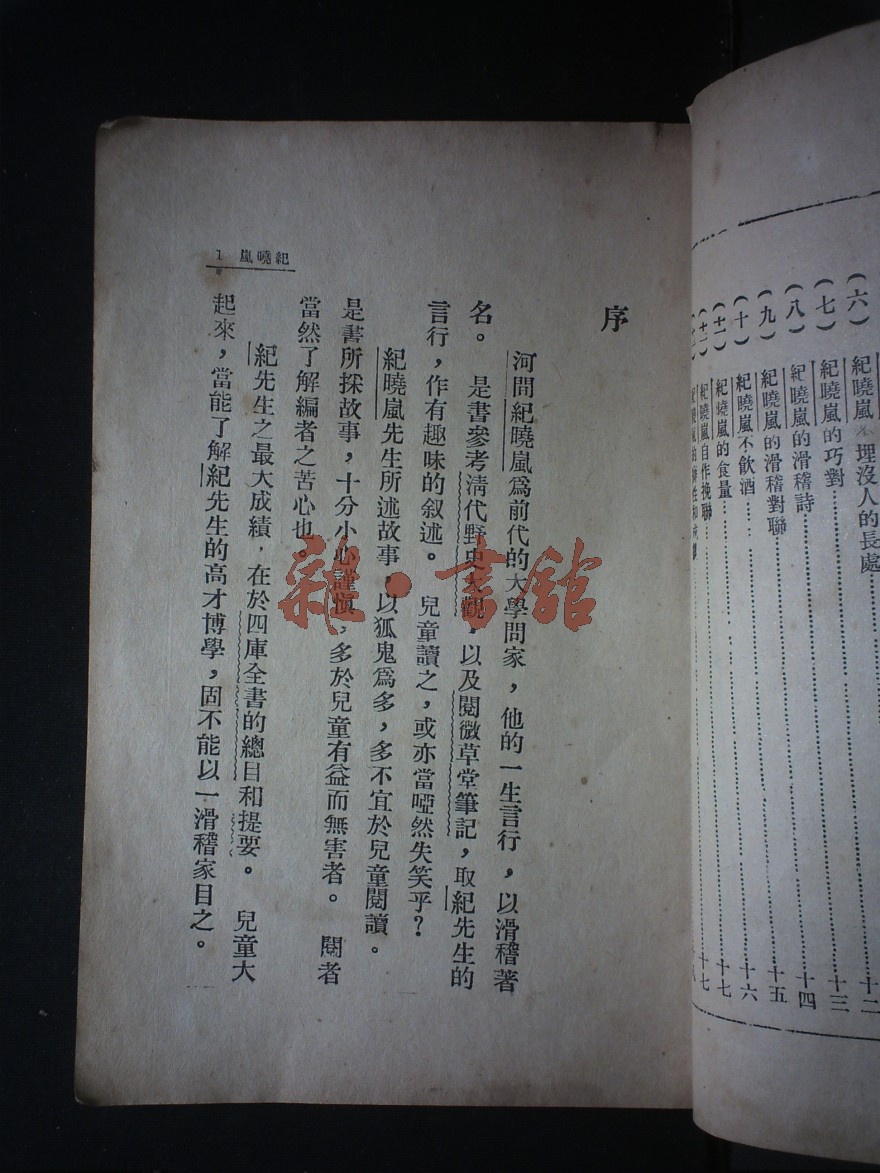 (六) 紀曉嵐不埋沒人的長處……十二
(七) 紀曉嵐的巧對……十三
(八) 紀曉嵐的滑稽詩……十四
(九) 紀曉嵐的滑稽對聯……十五
(十) 紀曉嵐不飲酒……十六
(十一) 紀曉嵐的食量……十七
(十二) 紀曉嵐自作挽聯……十七
序
河間紀曉嵐爲前代的大學問家，他的一生言行，以滑稽著
名。是書參考清代野史大觀，以及閱微草堂筆記，取紀先生的
言行，作有趣味的叙述。兒童讀之，或亦當啞然失笑乎？
紀曉嵐先生所述故事，以狐鬼爲多，多不宜於兒童閱讀。
是書所採故事，十分小心謹愼，多於兒童有益而無害者。閱者
當然了解編者之苦心也。
紀先生之最大成績，在於四庫全書的總目和提要。兒童大
起來，當能了解紀先生的高才博學，固不能以一滑稽家目之。
紀曉嵐 1
雜·書館